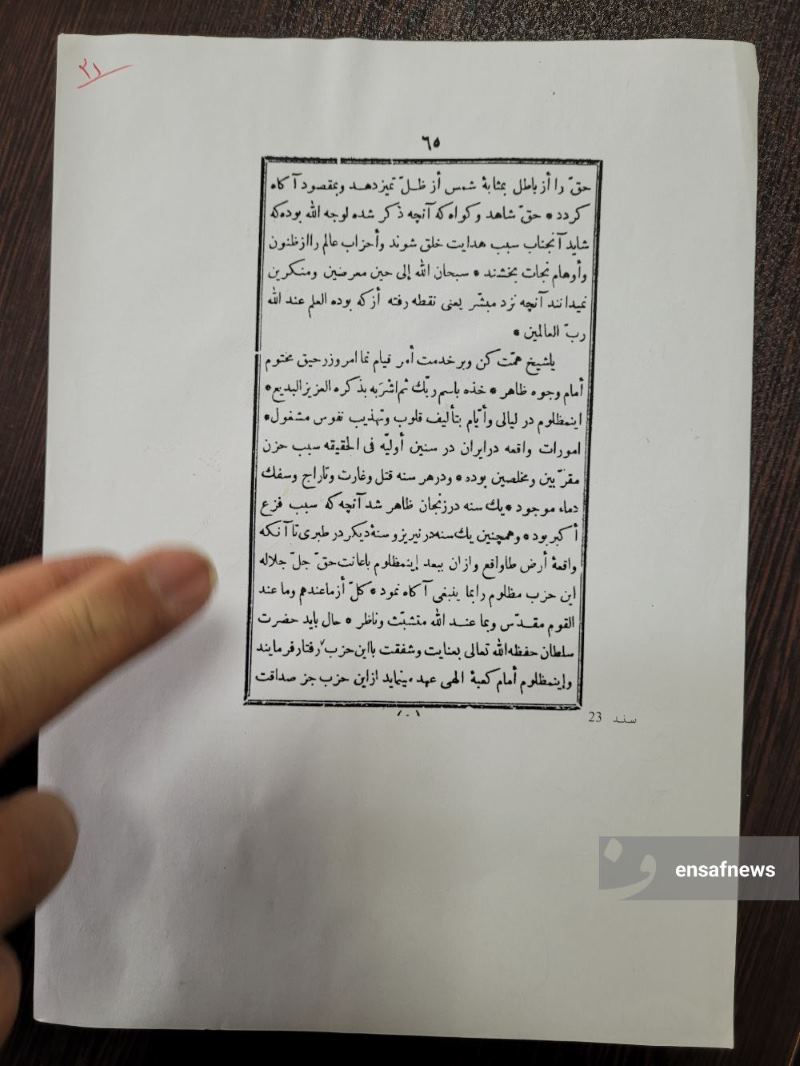 ۳۱
٦٥
حقّ را أز باطل بمثابهٔ شمس أز ظلّ تمیز دهد وبمقصود آگاه
کردد * حقّ شاهد و کواه که آنچه ذکر شده لوجه الله بوده که
شاید آنجناب سبب هدایت خلق شوند وأحزاب عالم را از ظنون
وأوهام نجات بخشند * سبحان الله إلی حین معرضین ومنکرین
نمیدانند آنچه نزد مبشّر یعنی نقطه رفته أز که بوده العلم عند الله
ربّ العالمین *
یاشیخ همّت کن وبر خدمت أمر قیام نما امروز رحیق مختوم
أمام وجوه ظاهر * خذه باسم ربّك ثم اشربه بذکره العزیز البدیع *
اینمظلوم در لیالی وأیّام بتألیف قلوب وتهذیب نفوس مشغول *
امورات واقعه در ایران در سنین أولیّه فی الحقیقه سبب حزن
مقرّبین ومخلصین بوده * ودر هر سنه قتل وغارت وتاراج وسفك
دماء موجود * یك سنه در زنجان ظاهر شد آنچه که سبب فزع
أکبر بود * وهمچنین یك سنه در نیریز و سنهٔ دیکر در طبری تا آنکه
واقعهٔ أرض طا واقع و از ان ببعد إینمظلوم باعانت حقّ جلّ جلاله
این حزب مظلوم را بما ینبغی آکاه نمود * کلّ أز ما عندهم وما عند
القوم مقدّس وبما عند الله متشبّث وناظر * حال باید حضرت
سلطان حفظه الله تعالی بعنایت وشفقت با این حزب رفتار فرمایند
وإینمظلوم أمام کعبهٔ الهی عهد مینماید از این حزب جز صداقت
سند 23
ensafnews